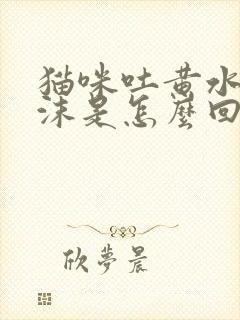 猫咪吐黄水
沫是怎麼回
欣夢晨